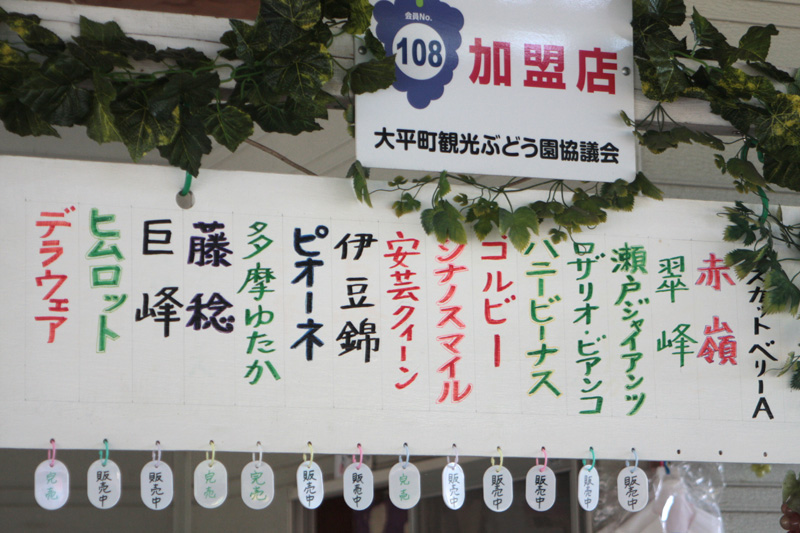 会員No.
108
加盟店
大平町観光ぶどう園協議会
スカットベリーA
赤嶺
翠峰
瀬戸ジャイアンツ
ロザリオ・ビアンコ
ハニービーナス
ゴルビー
シナノスマイル
安芸クィーン
伊豆錦
ピオーネ
多摩ゆたか
藤稔
巨峰
ヒムロット
デラウェア
完売
販売中
販売中
完売
完売
販売中
販売中
完売
販売中
販売中
販売中
販売中
販売中